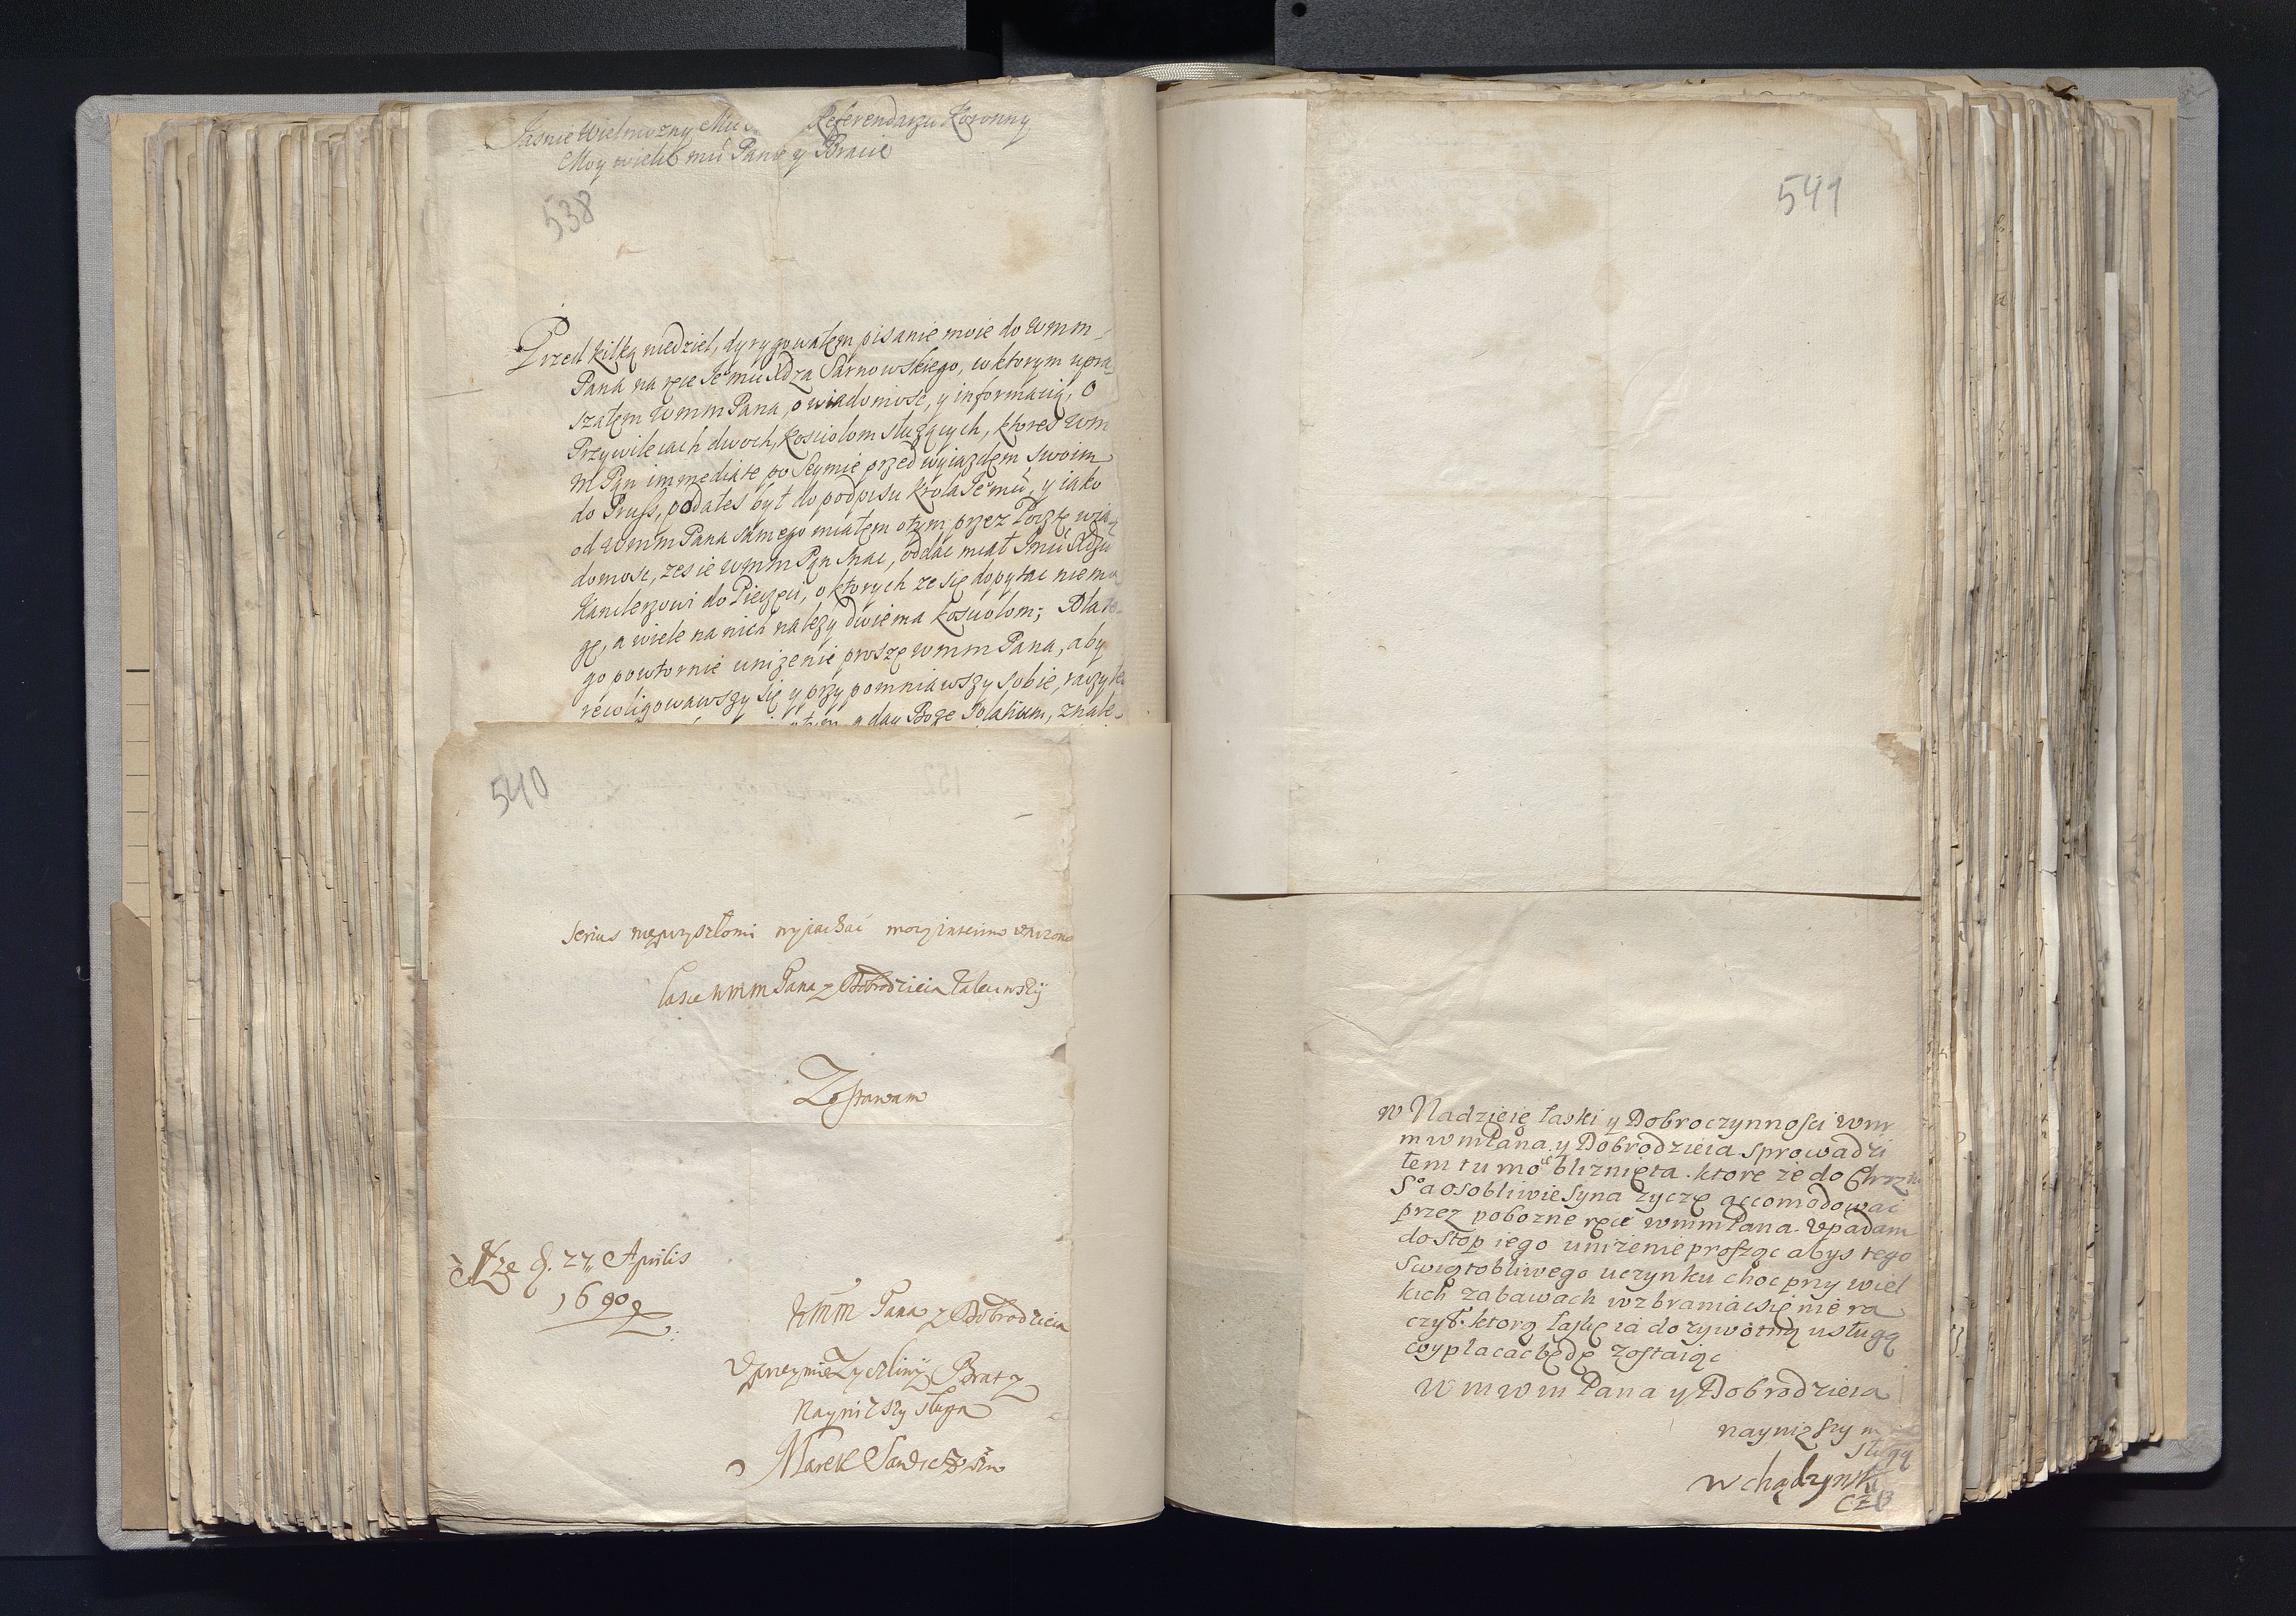 Jasnie Wielmozny Mu Referendarzu Koronny
Moy wielce mu Panie y Bracie
538
Przed kilką niedziel, dyrygowałem pisanie moie do Wmm
Pana na ręce Je͠mu Xdza Sarnowskiego, w ktorym upra
szałem Wmm Pana, o wiadomosc, y informacią, O
Przywileiach dwoch, Kosciolom sluzących, ktores Wm
M Pan immediate po Seymie przed wyiazdem swoim
do Pruss, podałes był do podpisu Krola Je͠mu, y iako
od Wmm Pana samego miałem o tym przez Pocztę wia
domosc, zes ie Wmm Pan miał, oddac miał Jmu Xdzu
Kanclerzowi do Pieczęci, o ktorych ze się dopytac nie mo
gę, a wiele na nich nalezy dwiema Kosciolom; Dla te
go powtornie unizenie proszę Wmm Pana, aby
rewoligowawszy się y przypomniawszy sobie, raczyłes
a day Boze Solatium, znale
540
serius wyiachać
łasce Wmm Pana y Dobrodzieia
Zostawam
d. 27 Aprilis
1690
Wmm Pana y Dobrodzieia
Uprzeymie Zyczliwy Brat y
Nayniższy sługa
Marek
541
w Nadzieię łaski y Dobroczynnosci wm
m w m Pana y Dobrodzieia sprowadzi
łem tu moie bliznięta. ktore ze do Chrztu
So a osobliwie syna zyczę accomodowac
przez pobozne ręce wmm Pana. Upadam
do stop iego unizenie prosząc abys tego
swiątobliwego uczynku choc przy wiel
kich zabawach wzbraniac się nie ra
czył. ktorą łaskę ia dozywotnią usługą
wypłacac będę zostaiąc
W m w m Pana y Dobrodzieia
nayniższy
sługą
W Chądzynski
CZB